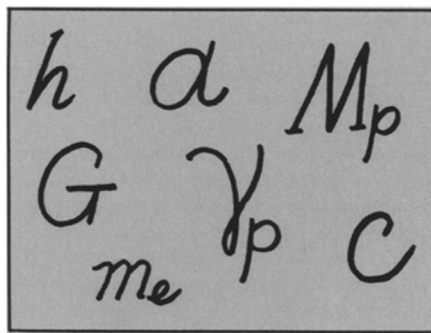 h α M_p
G γ_p c
m_e